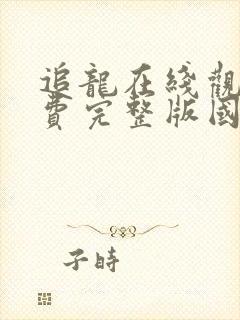 追龍在綫觀
費完整版國
子時